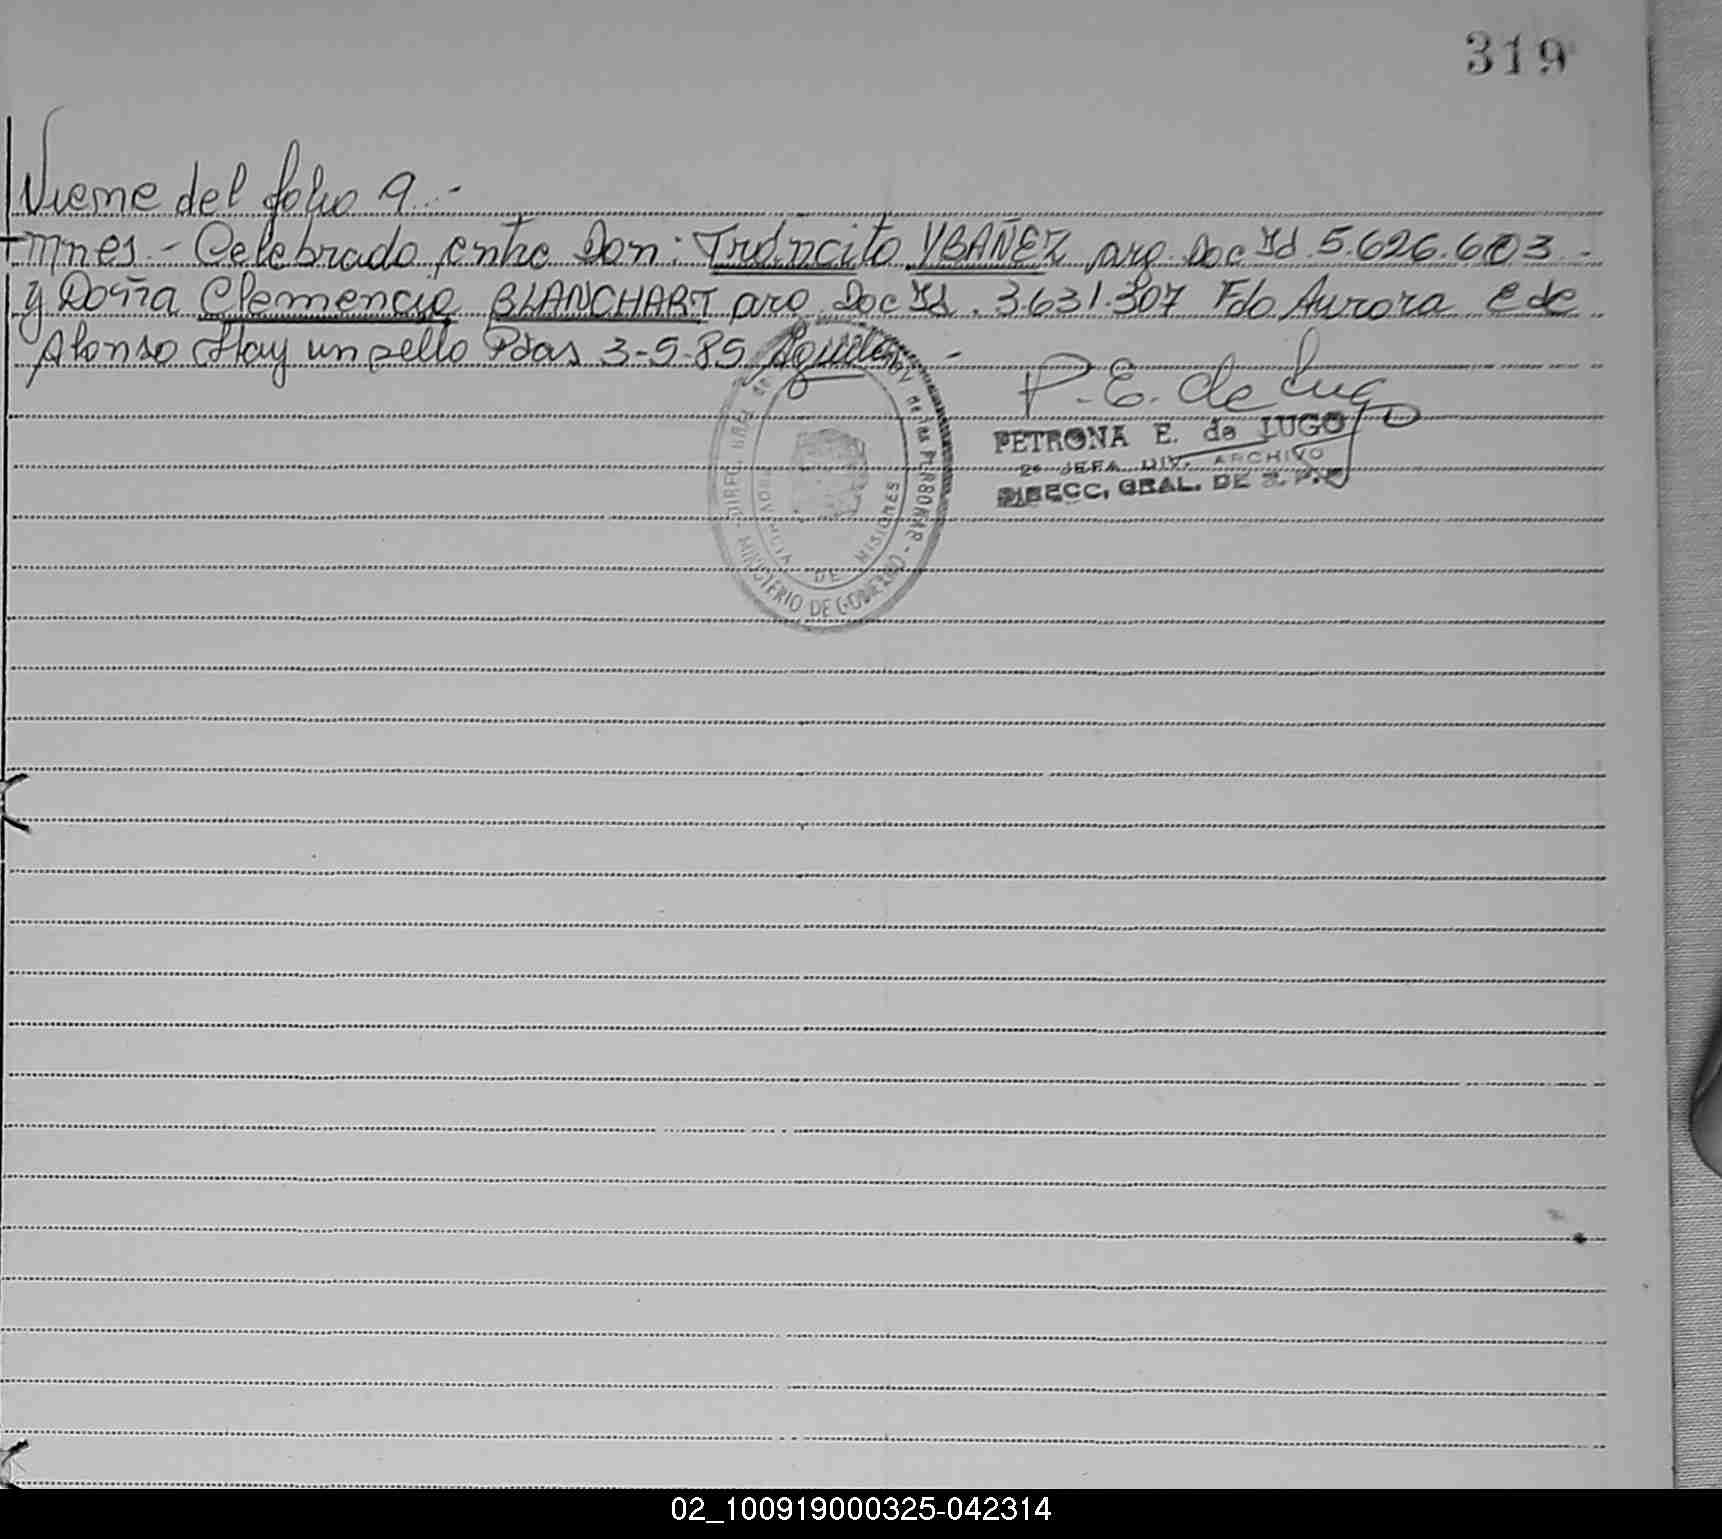 319
Viene del folio 9.-
Mnes.- Celebrado entre Don: Tráncito YBAÑEZ arg. Doc Id 5.626.603.-
y Doña Clemencia BLANCHART arg. Doc Id. 3.631.307 Fdo Aurora C de
Alonso Hay un sello Pdas 3-5-85 -
P. E. de Lugo
PETRONA E. de LUGO
2º JEFA DIV. ARCHIVO
DIRECC, GRAL. DE R. P.
DIREC. GRAL de las PERSONAS - MINISTERIO DE GOBIERNO
PROVINCIA DE MISIONES
02_100919000325-042314